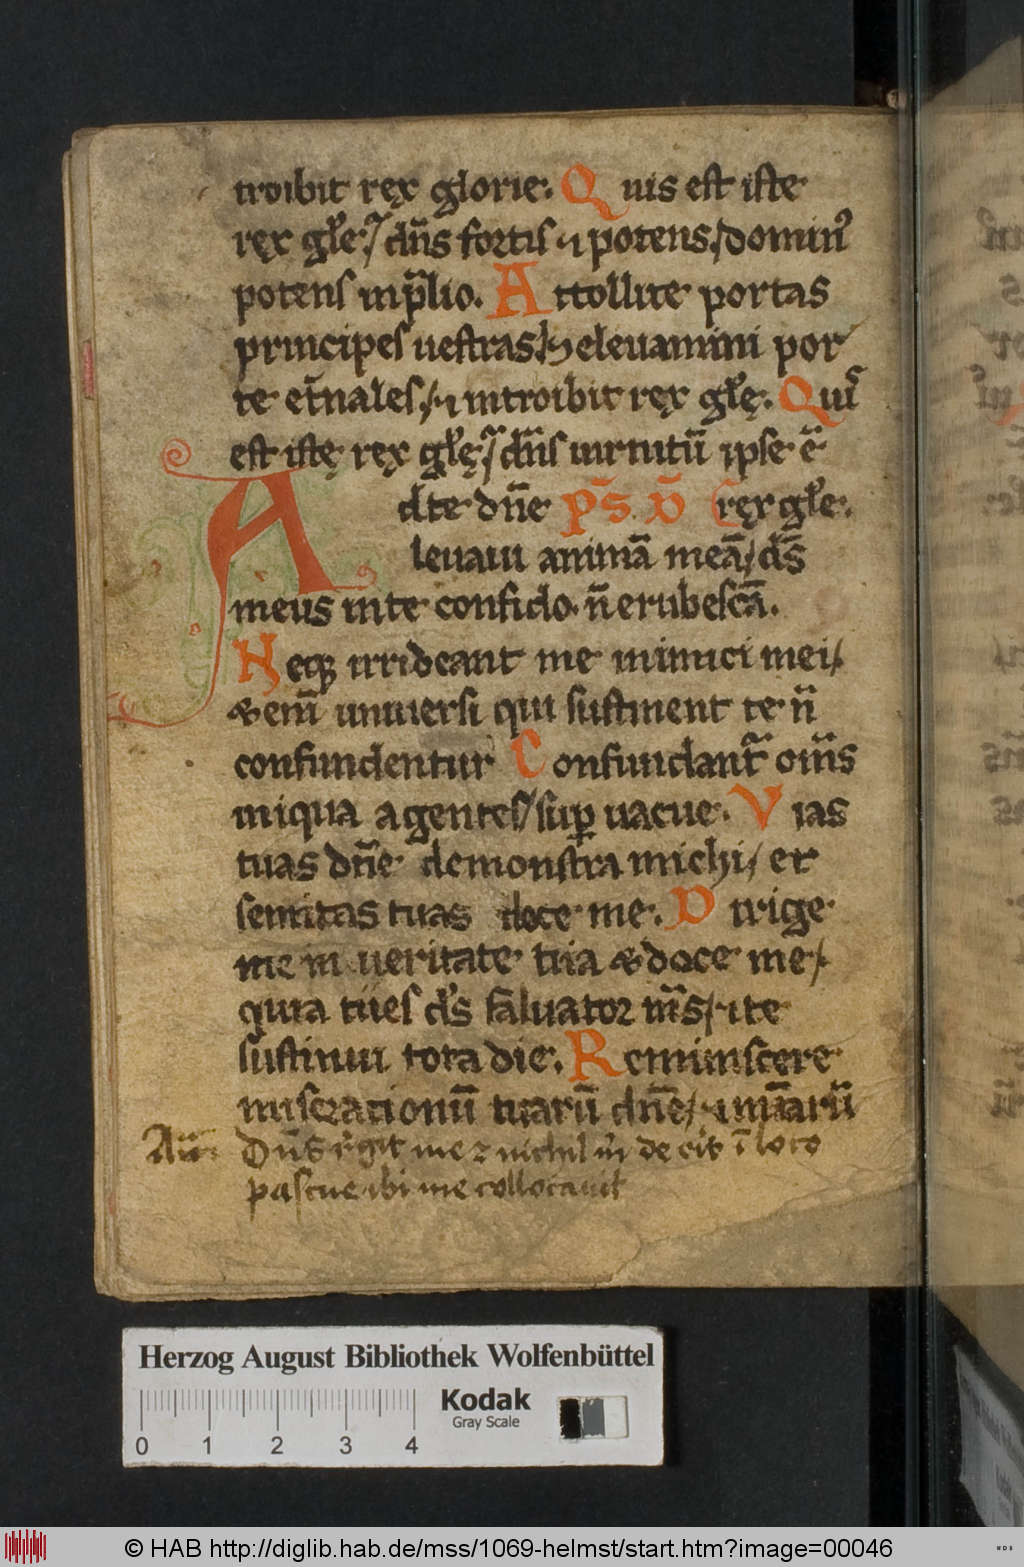 troibit ręx glorie. Quis est iste
ręx gl̄e? dn̄s fortis ⁊ potens/ domin᷒
potens inp̄lio. Attollite portas
principes uestras/ ⁊ eleuamini por
te et̄nales/ ⁊ introibit ręx gl̄ę. Quis
est istę ręx gl̄ę? dn̄s uirtutū ipse ē
ręx gl̄e.
Ad te dn̄e ps̄. Dd
leuaui animā meā/ ds̄
meus inte confido. n̄ erubescā.
Neq; irrideant me inimici mei/
& eni̅ uniuersi qui sustinent te n̄
confundentur Confundant᷑ om̄s
iniqua agentes/ suꝑ uacue. Vias
tuas dn̄e demonstra michi/ et
semitas tuas doce me. Dirige
me in ueritate tua & doce me/
quia tu es ds̄ saluator ms̄/ ⁊ te
sustinui tota die. Reminiscere
miserationū tuarū dn̄e/ ⁊ mīarū
An̄ Dn̄s rēgit me ⁊ nichil m̄ de erit ī loco
pascue ibi me collocauit
Herzog August Bibliothek Wolfenbüttel
Kodak
Gray Scale
0 1 2 3 4
© HAB http://diglib.hab.de/mss/1069-helmst/start.htm?image=00046